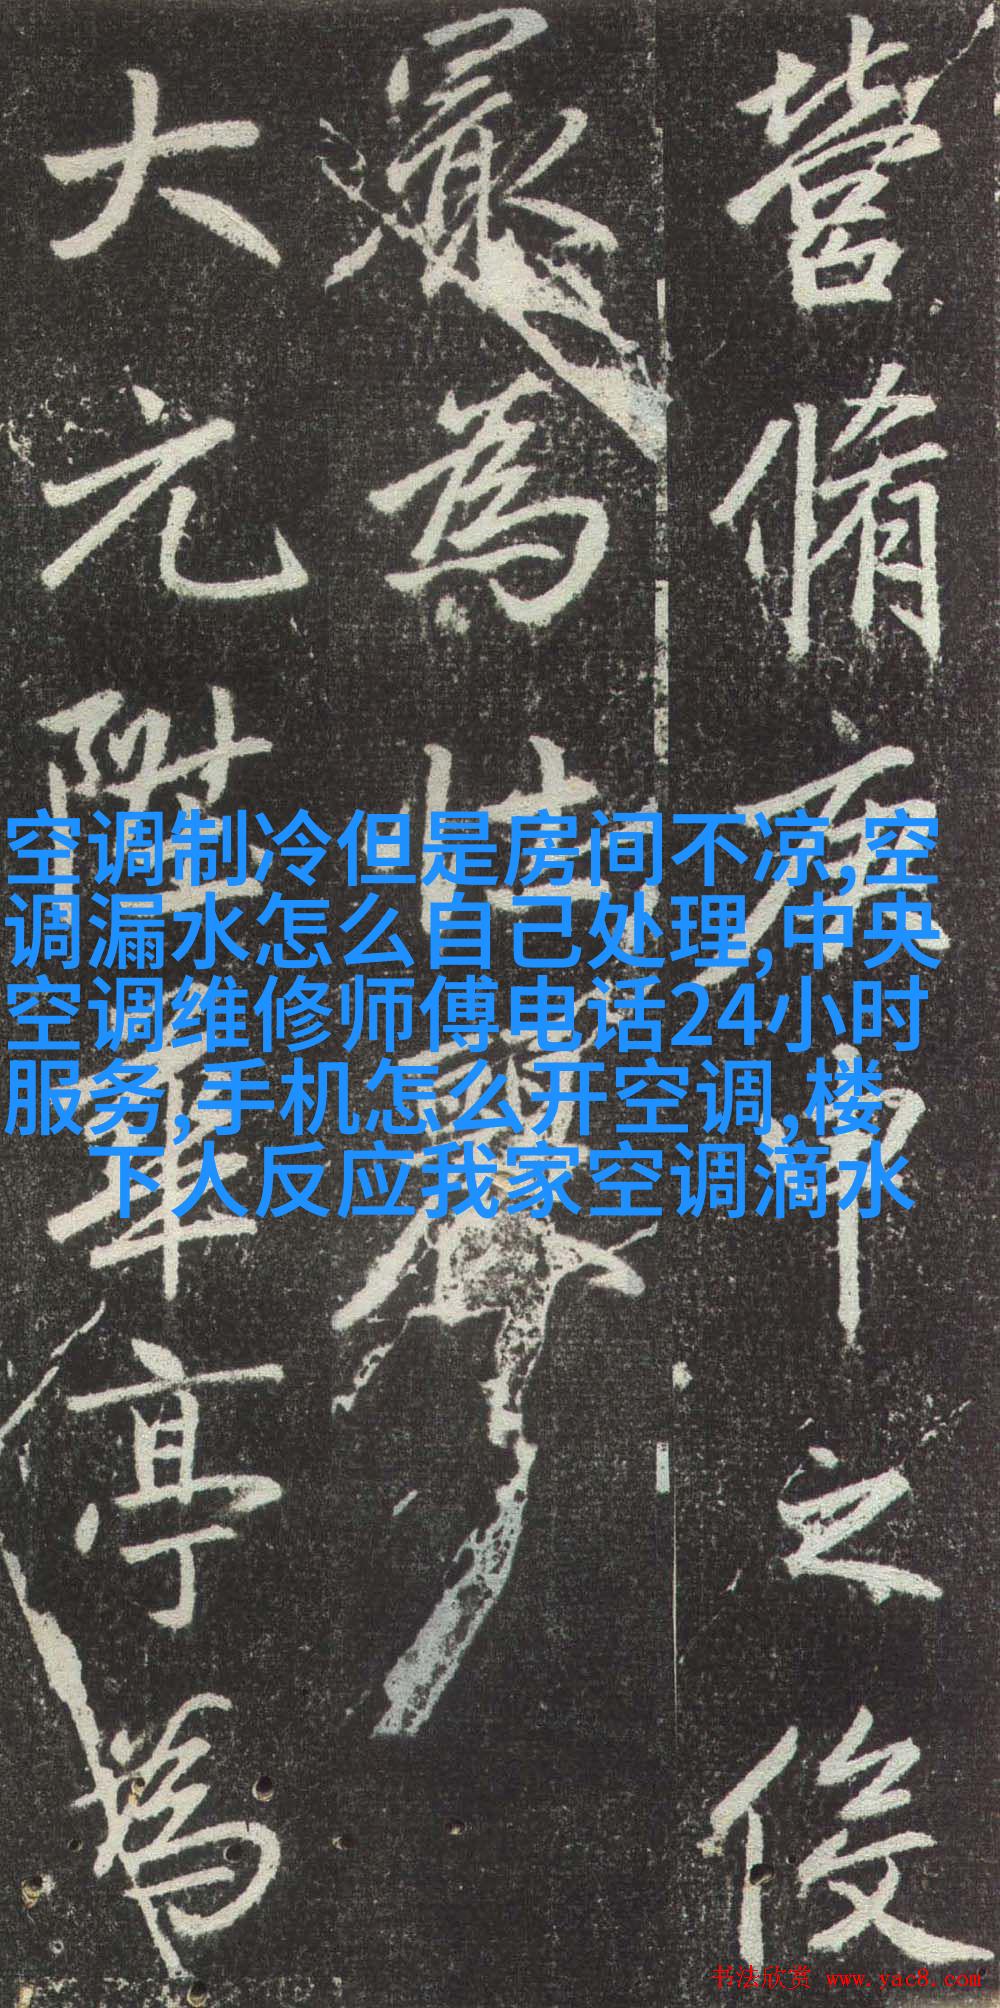 營脩庚申之後
為
大元陞華亭為
空调制冷但是房间不凉,空
调漏水怎么自己处理,中央
空调维修师傅电话24小时
服务,手机怎么开空调,楼
下人反应我家空调滴水
书法欣赏 www.yac8.com